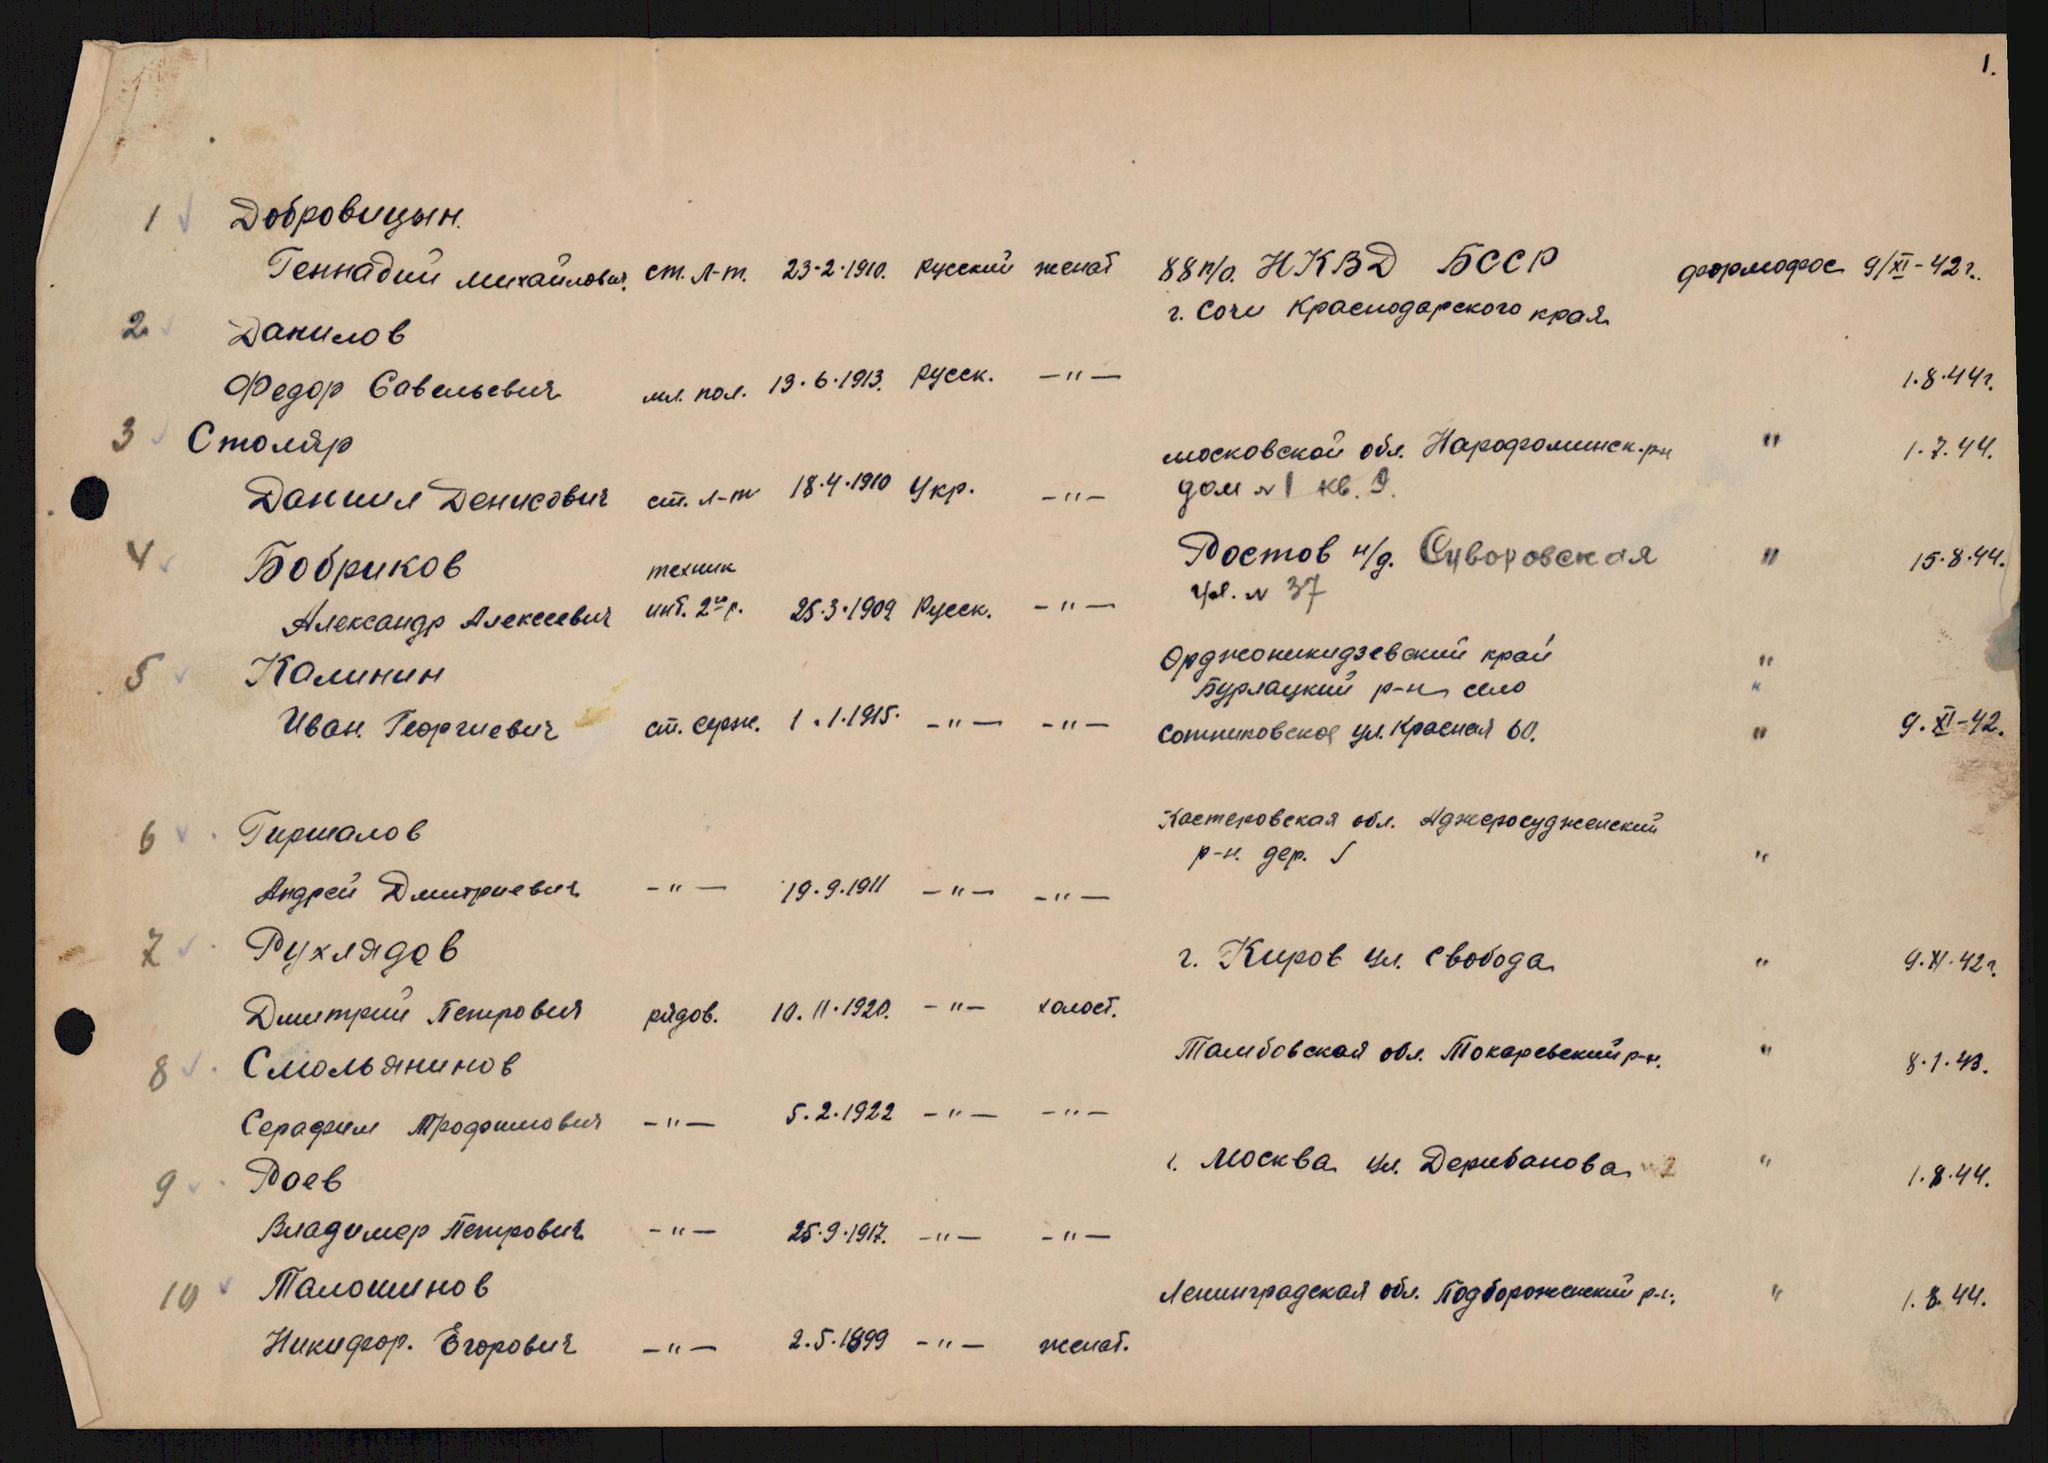 1.
1 Добровицын.
Геннадий Михайлович. ст. л-т. 23.2.1910. Русский женат 88 п/о. НКВД БССР формофос 9/XI-42 г.
г. Сочи Краснодарского края
2 Данилов
Федор Савельевич мл. пол. 13.6.1913. Русск. -"- 1.8.44 г.
3 Столяр московской обл. Нарофоминск. р-н " 1.7.44.
Даниил Денисович ст. л-т 18.4.1910 Укр. -"- дом №1 кв. 9.
4 Бобриков техник Ростов н/д. Суворовская " 15.8.44.
Александр Алексеевич инт. 25.3.1909 Русск. -"- ул. № 37
5 Калинин Орджоникидзевский край "
Бурлацкий р-н село "
Иван. Георгиевич ст. серж. 1.1.1915. -"- -"- Сотниковское ул. Красная 60. " 9.XI-42.
6 Гиршалов обл.
р-н. дер. "
Андрей Дмитриевич -"- 19.9.1911 -"- -"-
7 Рухлядов г. Киров ул. Свобода " 9.XI.42 г.
Дмитрий Петрович рядов. 10.11.1920. -"- холост.
8 Смольянинов Тамбовская обл. Токаревский р-н. " 8.1.43.
Серафим Трофимович -"- 5.2.1922 -"- -"-
9 Раев г. Москва ул. Дерибанова " 1.8.44.
Владимер Петрович -"- 25.9.1917. -"- -"-
10 Талошинов Ленинградская обл. Подборожский р-н. " 1.8.44.
Никифор. Егорович -"- 2.5.1899 -"- женат.